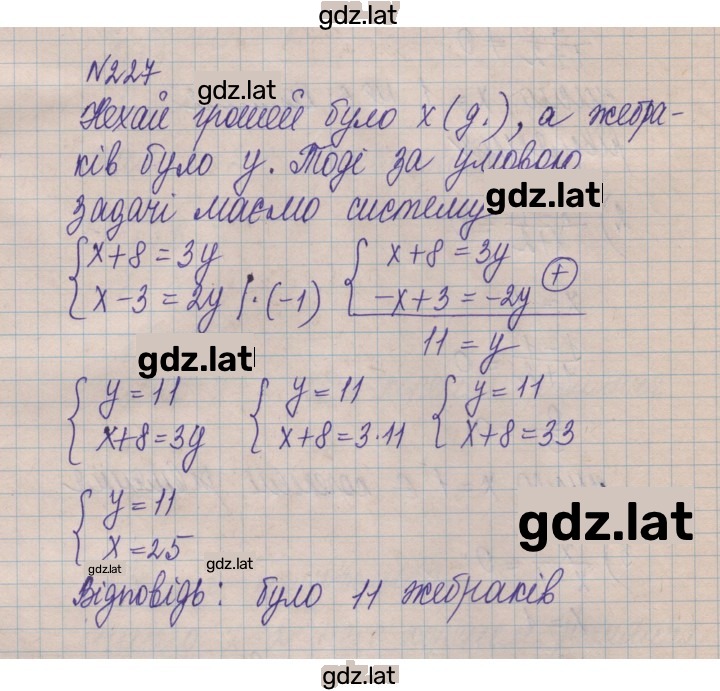 gdz.lat
N227
gdz.lat
Нехай грошей було x (д.), а жебра-
ків було y. Тоді за умовою
gdz.lat
задачі маємо систему
{ x+8=3y
x-3=2y |·(-1)
{ x+8=3y
-x+3=-2y (+)
11=y
gdz.lat
{ y=11
x+8=3y
{ y=11
x+8=3·11
{ y=11
x+8=33
{ y=11
x=25
gdz.lat
gdz.lat
gdz.lat
Відповідь: було 11 жебраків
gdz.lat